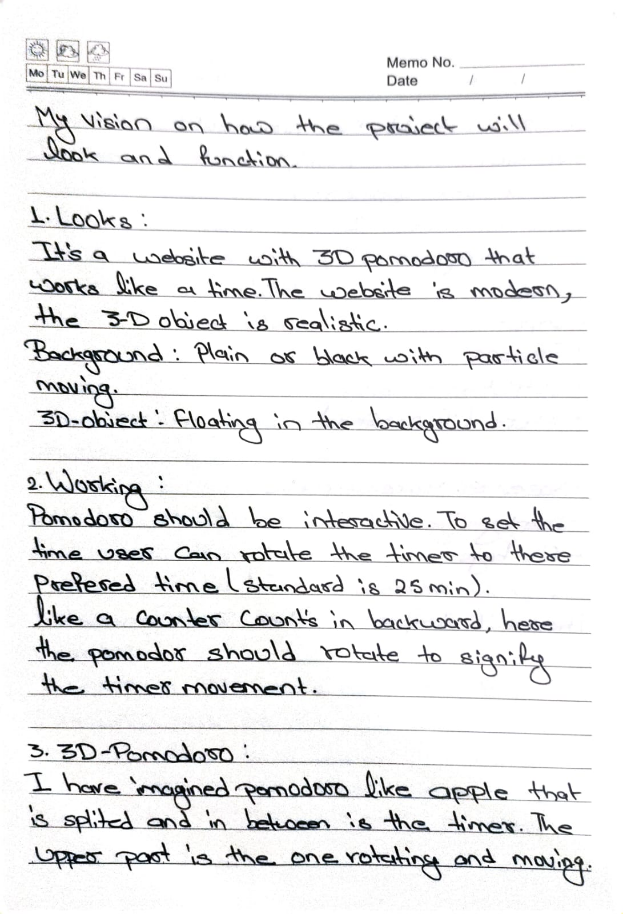 Mo Tu We Th Fr Sa Su
Memo No.
Date / /
My vision on how the project will
look and function.
1. Looks :
It's a website with 3D pomodoro that
works like a time. The website is modern,
the 3-D object is realistic.
Background : Plain or black with particle
moving.
3D-object : Floating in the background.
2. Working :
Pomodoro should be interactive. To set the
time user can rotate the timer to there
prefered time (standard is 25 min).
like a counter count's in backward, here
the pomodor should rotate to signify
the timer movement.
3. 3D-Pomodoro :
I have imagined pomodoro like apple that
is splited and in between is the timer. The
upper part is the one rotating and moving.